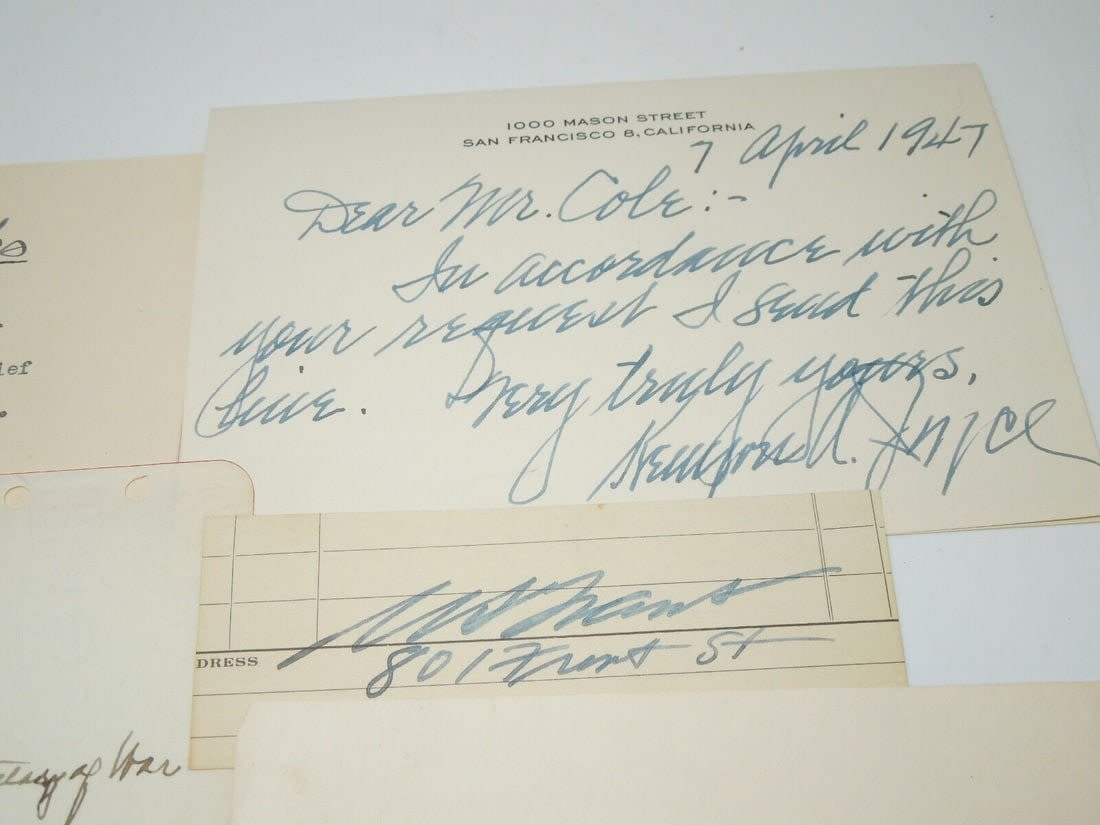 1000 MASON STREET
SAN FRANCISCO 8, CALIFORNIA
7 April 1947
Dear Mr. Cole:-
In accordance with
your request I send this
line. Very truly yours,
lef
DRESS
801 Front St
of War